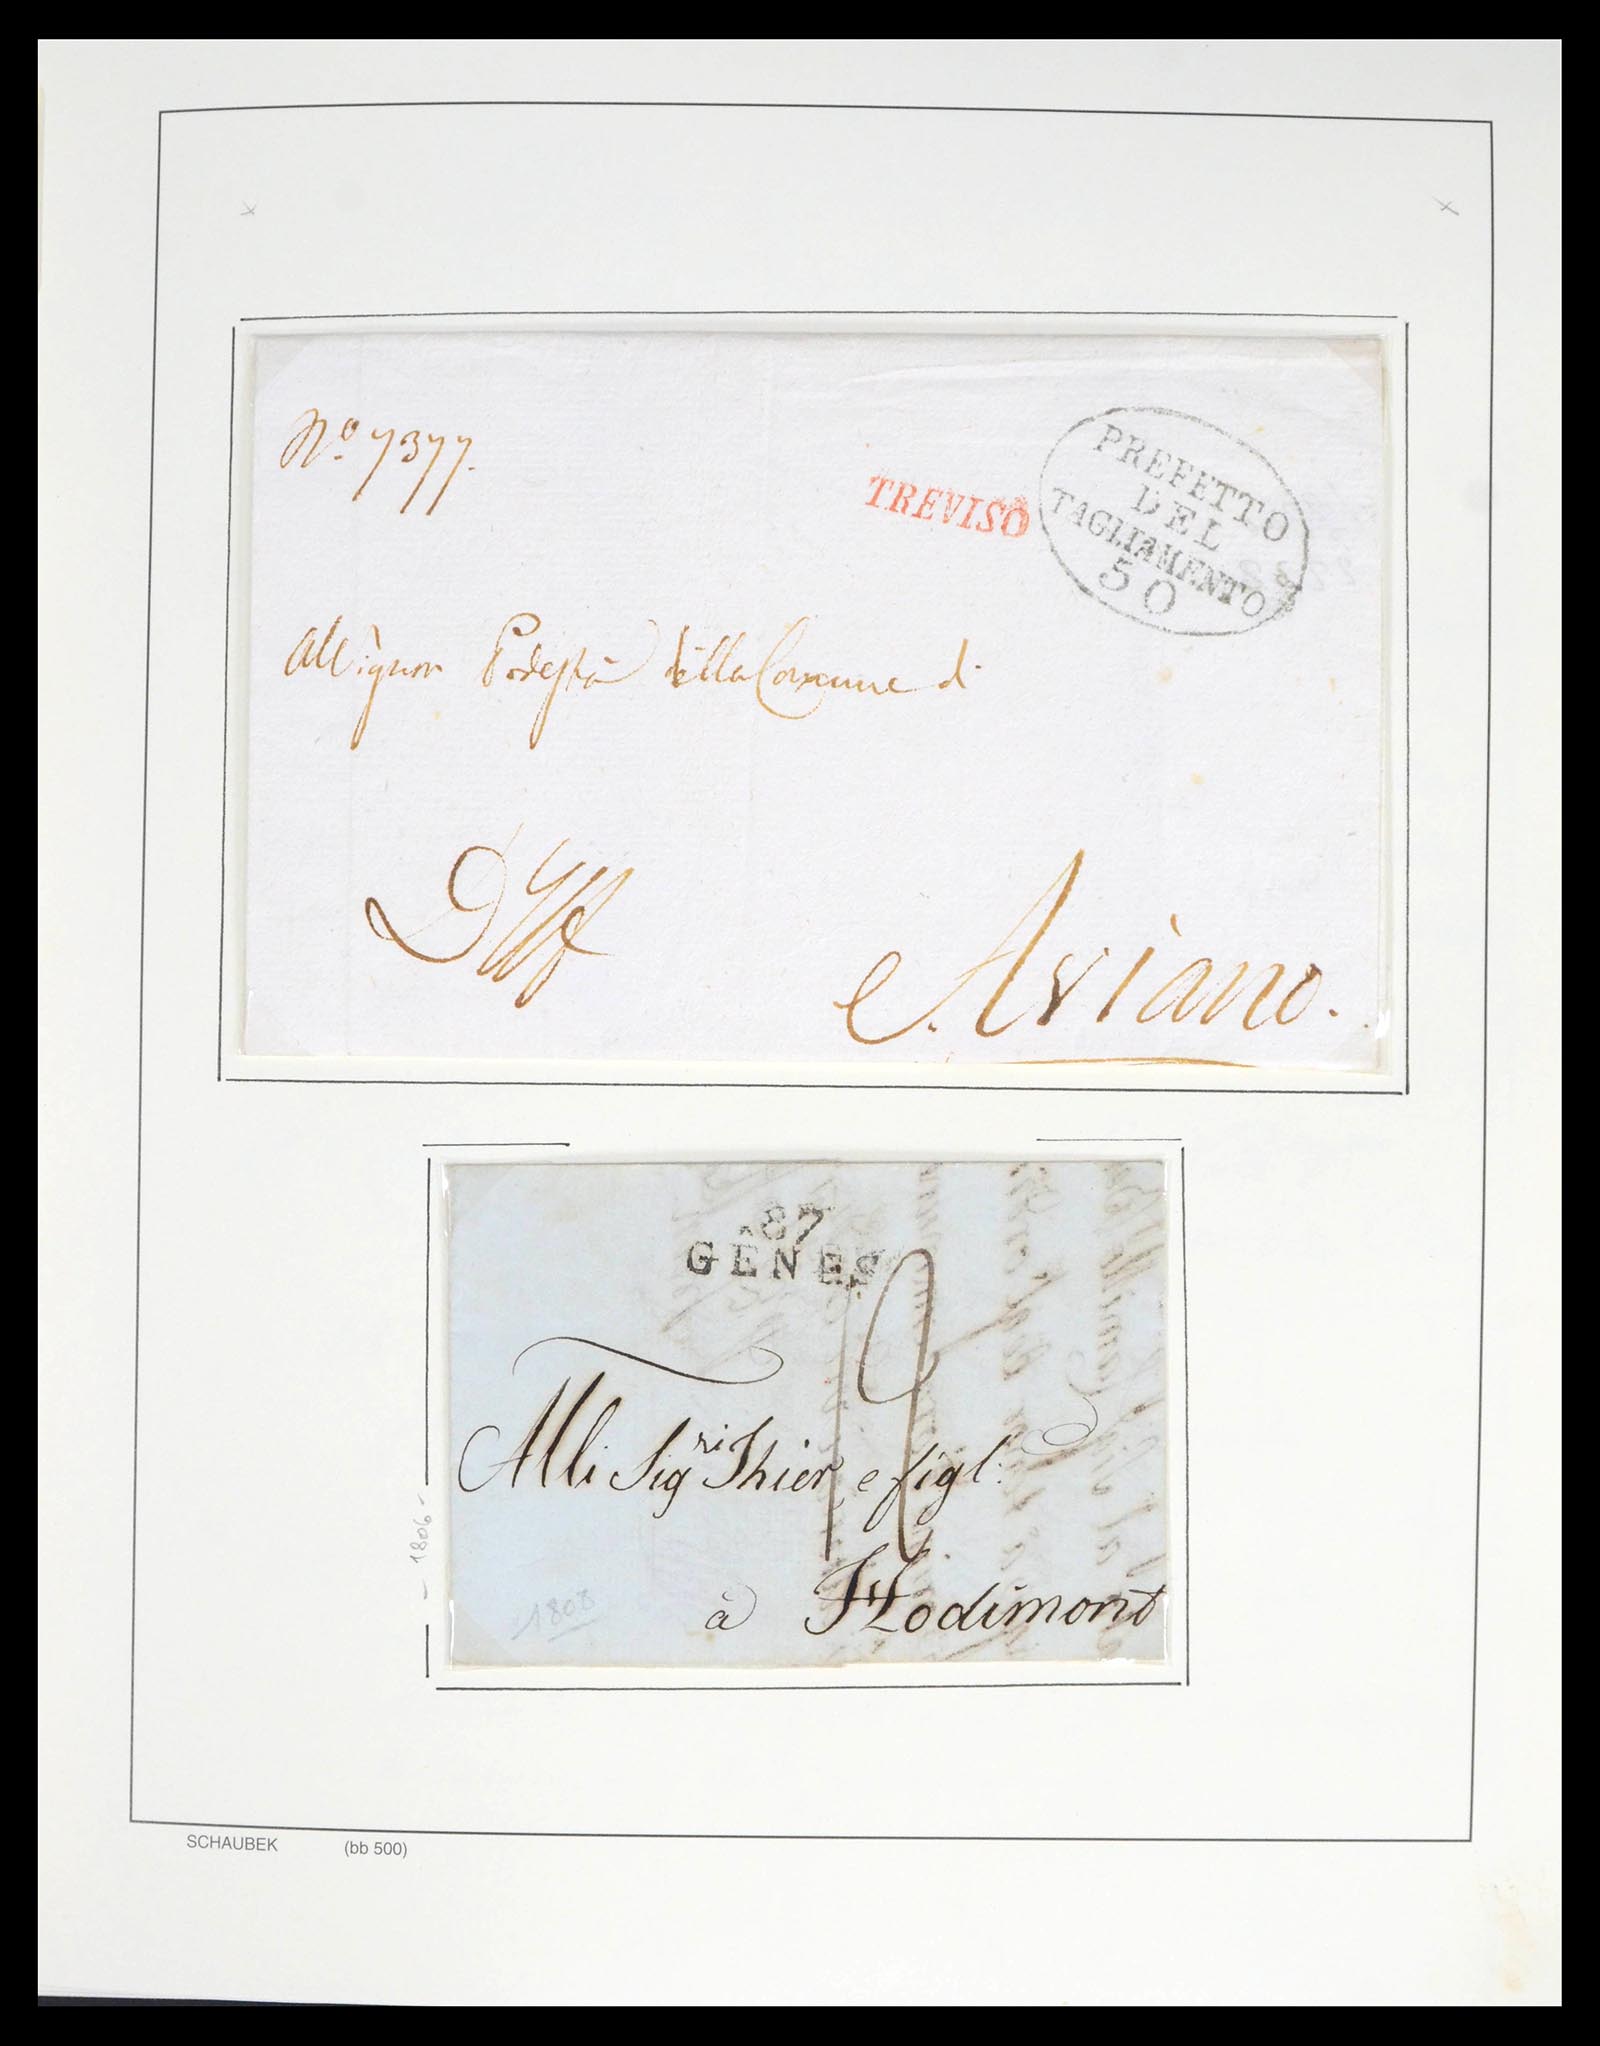 No. 7377.
TREVISO
PREFETTO
DEL
TAGLIAMENTO
50
Al Signor Podestà della Comune di
Aviano.
87
GÊNES
19
Alli Sigri Thier e figl:
à Hodimont
1808
- 1806 -
SCHAUBEK (bb 500)